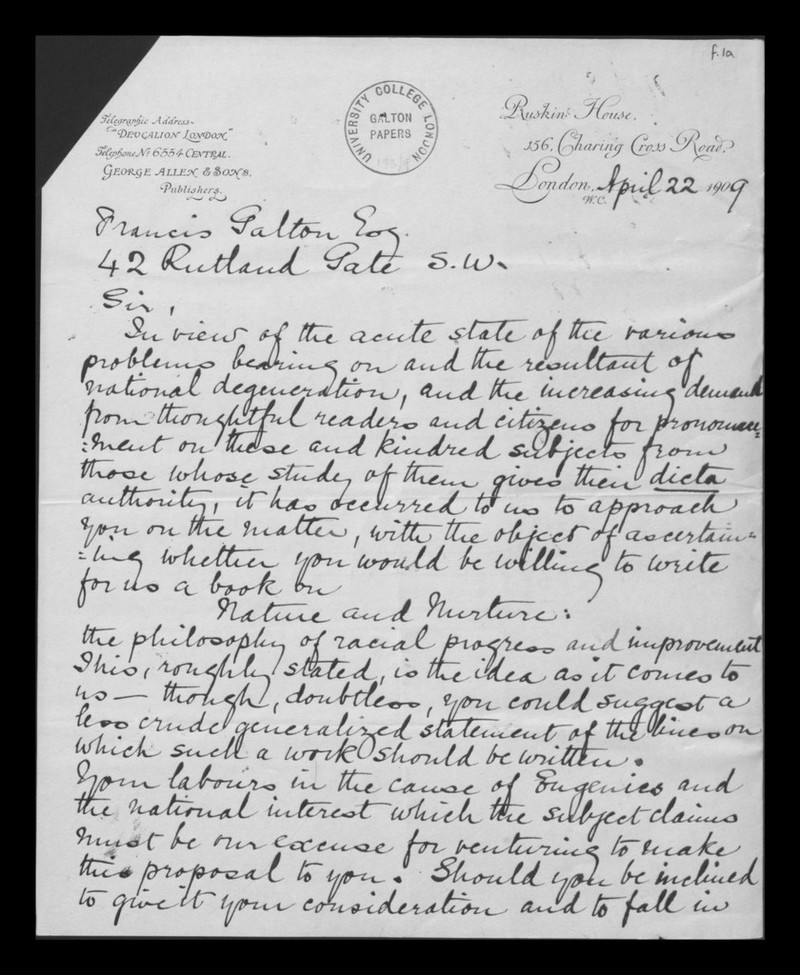 f.1a
Telegraphic Address-
"DEUCALION LONDON."
Telephone No 6554 CENTRAL.
GEORGE ALLEN & SONS.
Publishers.
UNIVERSITY COLLEGE LONDON
GALTON
PAPERS
Ruskin House.
156, Charing Cross Road,
London, April 22 1909
W.C.
Francis Galton Esq.
42 Rutland Gate S.W.
Sir,
In view of the acute state of the various
problems bearing on and the resultant of
national degeneration, and the increasing demand
from thoughtful readers and citizens for pronounce=
=ment on these and kindred subjects from
those whose study of them gives their dicta
authority, it has occurred to us to approach
you on the matter, with the object of ascertain=
=ing whether you would be willing to write
for us a book on
Nature and Nurture:
the philosophy of racial progress and improvement
This, roughly stated, is the idea as it comes to
us — though, doubtless, you could suggest a
less crude generalized statement of the lines on
which such a work should be written.
Your labours in the cause of Eugenics and
the national interest which the subject claims
must be our excuse for venturing to make
this proposal to you. Should you be inclined
to give it your consideration and to fall in